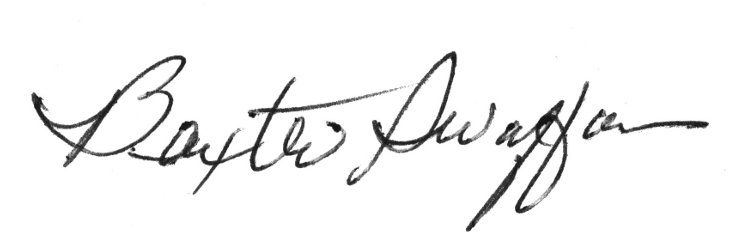 Baxter Swaffar